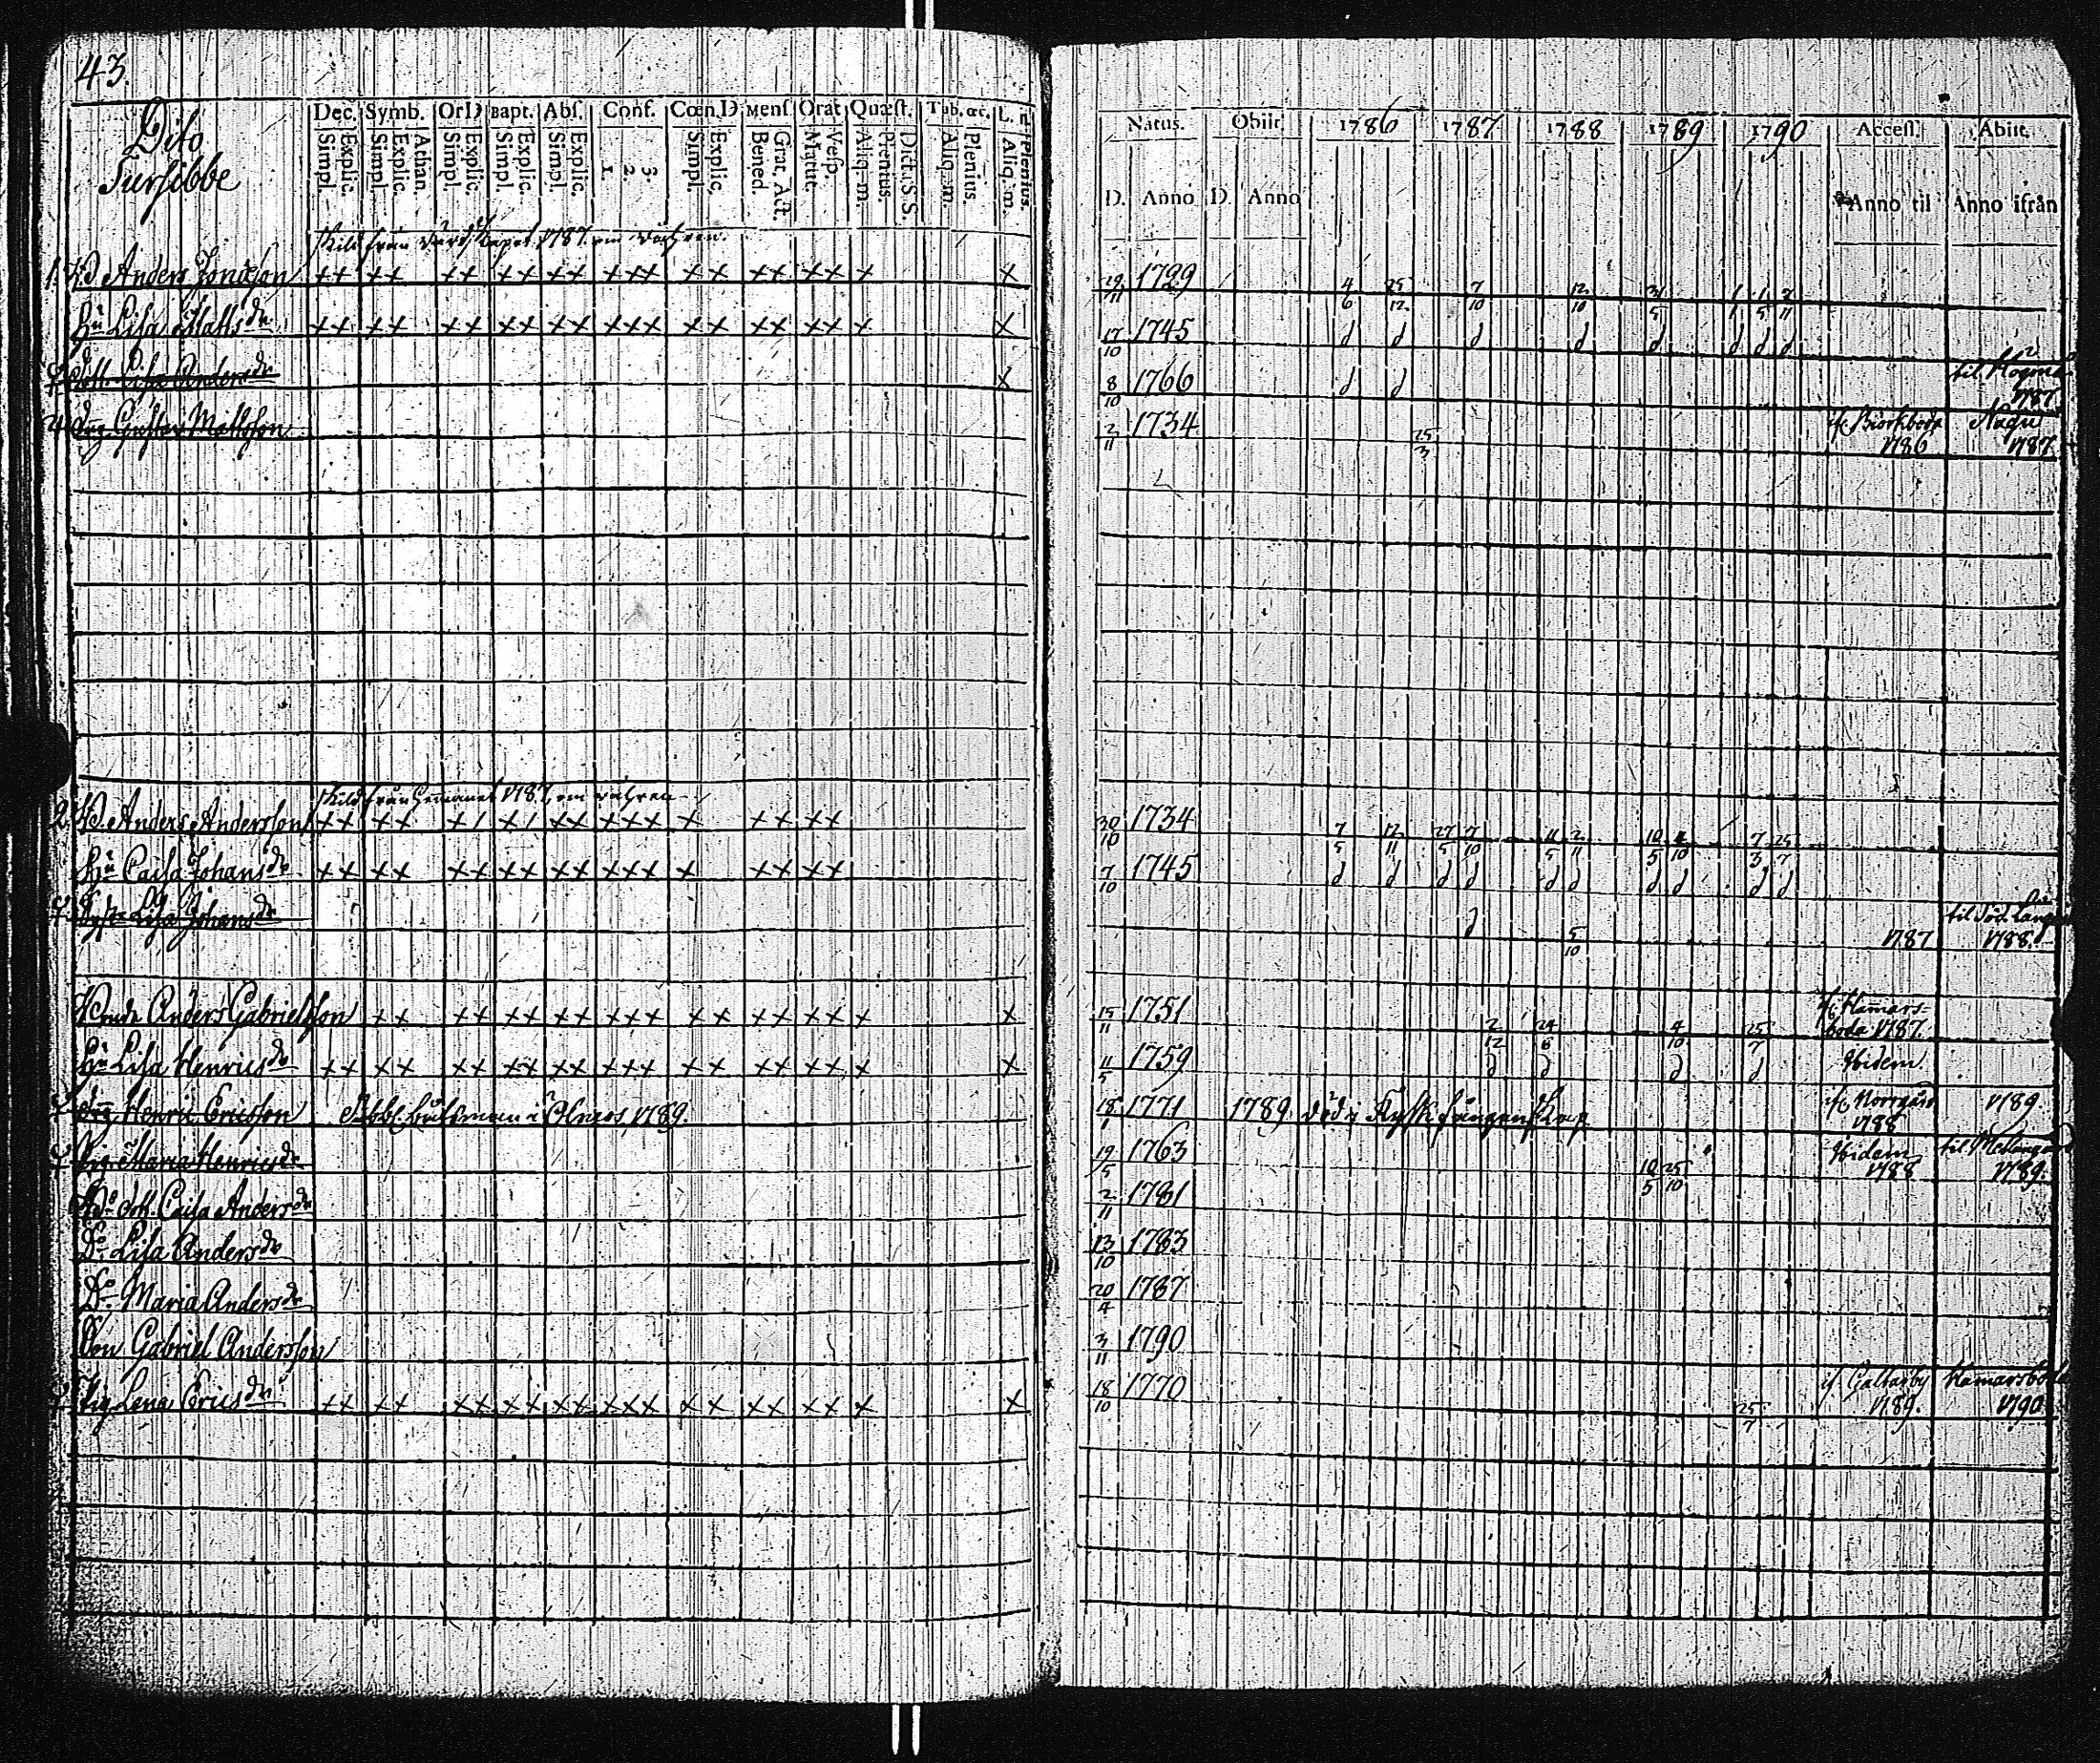 43.
Dito
Tursibbe
Dec. Symb. Or D Bapt. Abſ. Conf. Cœn. D Menſ. Orat Quæſt. Tab. œc. L. n
Simpl. Explic. Simpl. Explic. Athan. Simpl. Explic. Simpl. Explic. Simpl. Explic. 1. 2. 3. Simpl. Explic. Bened. Grat. Act. Matut. Veſp. Aliq. m. Plenius. Dict. S. S. Aliq. m. Plenius. Aliq. m. Plenius.
Natus. Obiit 1786 1787 1788 1789 1790 Acceſſ. Abiit.
D. Anno D Anno Anno til Anno ifrån
skild från 1787 om
1. Anders Jonsson ++ ++ ++ ++ ++ +++ ++ ++ ++ + + 29/11 1729 4/6 25/12 7/10 12/10 31/5
Hu Lisa Matts dr ++ ++ ++ ++ ++ +++ ++ ++ ++ + + 17/10 1745 d d d d d d d d
Dott. Lisa Anders dr + 8/10 1766 d d til 1787
drg Gustav Mattsson 2/11 1734 25/3 if. Biörkboda 1786 Nagu 1787
skild från Hemanet 1787 om
2. Anders Andersson ++ ++ ++ ++ ++ +++ + ++ ++ 30/10 1734 7/5 12/11 27/5 7/10 11/5 2/11 10/5 4/10 7/3 25/7
Hu Caisa Johans dr ++ ++ ++ ++ ++ +++ + ++ ++ 7/10 1745 d d d d d d d d d d
Lisa Johans dr d 5/10 1787 til 1788.
Anders Gabrielsson ++ ++ ++ ++ +++ ++ ++ ++ + + 15/11 1751 2/12 24/6 4/10 25/7 if Hamarsboda 1787.
Hu Lisa Henrics dr ++ ++ ++ ++ ++ +++ ++ ++ ++ + + 11/5 1759 d d d d Ibidem
drg Henric Ericsson 1789. 18/1 1771 1789 död i Rysk fångenskap if. Norrgård 1788 1789.
Pig. Maria Henrics dr 19/5 1763 10/5 25/10 Ibidem 1788 til Mellangård 1789.
dott. Caisa Anders dr 2/11 1781
Do Lisa Anders dr 13/10 1783
Do Maria Anders dr 20/4 1787
Son Gabriel Andersson 3/11 1790
Pig Lena Erics dr ++ ++ ++ ++ ++ +++ ++ ++ ++ + + 18/10 1770 25/7 if Galtarby 1789. Hamarsboda 1790